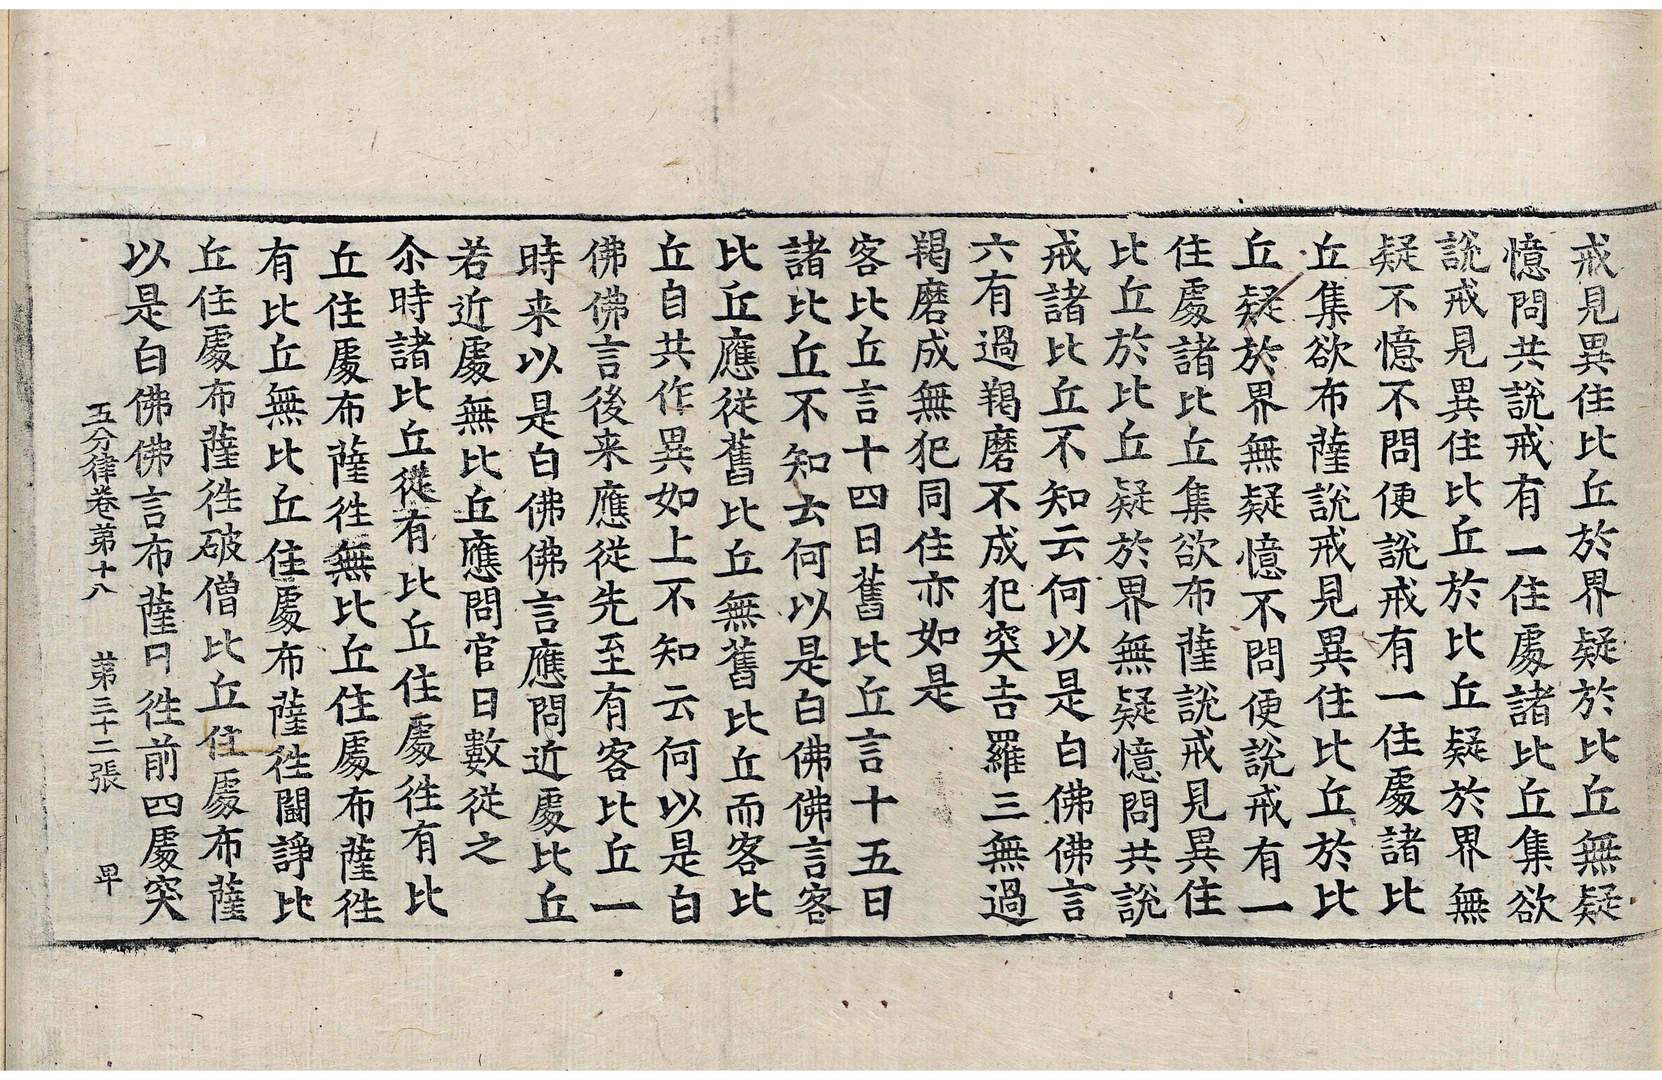 戒見異住比丘於界疑於比丘無疑
憶問共說戒有一住處諸比丘集欲
說戒見異住比丘於比丘疑於界無
疑不憶不問便說戒有一住處諸比
丘集欲布薩說戒見異住比丘於比
丘疑於界無疑憶不問便說戒有一
住處諸比丘集欲布薩說戒見異住
比丘於比丘疑於界無疑憶問共說
戒諸比丘不知云何以是白佛佛言
六有過羯磨不成犯突吉羅三無過
羯磨成無犯同住亦如是
客比丘言十四日舊比丘言十五日
諸比丘不知云何以是白佛佛言客
比丘應從舊比丘無舊比丘而客比
丘自共作異如上不知云何以是白
佛佛言後来應從先至有客比丘一
時来以是白佛佛言應問近處比丘
若近處無比丘應問官日數從之
尒時諸比丘從有比丘住處徃有比
丘住處布薩徃無比丘住處布薩徃
有比丘無比丘住處布薩徃鬪諍比
丘住處布薩徃破僧比丘住處布薩
以是白佛佛言布薩日徃前四處突
五分律卷第十八 第三十二張 卑